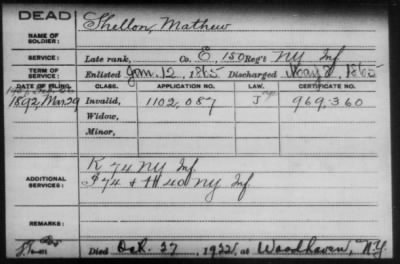 DEAD
Shellon, Mathew
NAME OF SOLDIER:
SERVICE: Late rank, Co. E, 150 Reg't NY Inf
TERM OF SERVICE: Enlisted Jan. 12, 1865 Discharged May 8, 1865
DATE OF FILING. CLASS. APPLICATION NO. LAW. CERTIFICATE NO.
1892, Mar. 29 Invalid, 1102,087 J 969.360
Widow,
Minor,
K 74 NY Inf
ADDITIONAL SERVICES: I 74 & H 40 NY Inf
REMARKS:
Died Oct. 27, 1922, at Woodhaven, N.Y.